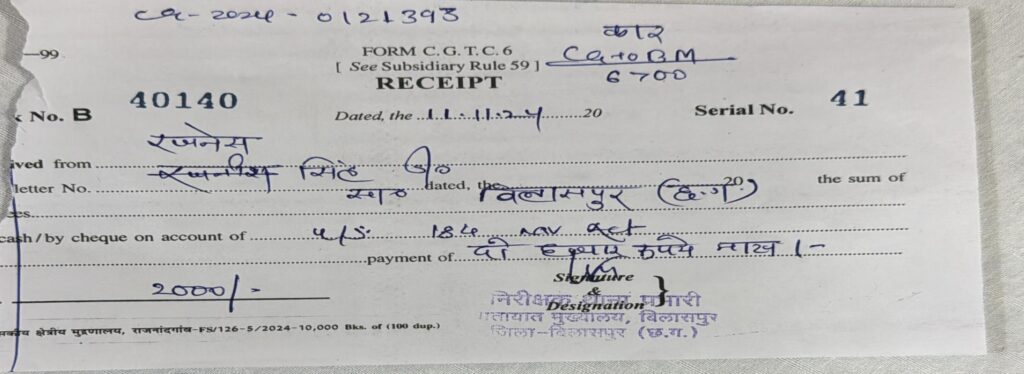 CG-2024-0121393
कार
-99
FORM C.G.T.C. 6
CG10BM
[ See Subsidiary Rule 59 ]
6700
RECEIPT
No. B 40140 Dated, the 11.11.24 20 Serial No. 41
रजनेस
ived from रजनीश सिंह
letter No. dated, the बिलासपुर (छ.ग) 20 the sum of
cash/by cheque on account of u/s. 184 MV Act
payment of दो हजार रूपये मात्र /-
2000/-
Signature
&
Designation
निरीक्षक थाना प्रभारी
यातायात मुख्यालय, बिलासपुर
जिला-बिलासपुर (छ.ग.)
क्षेत्रीय मुद्रणालय, राजनांदगांव-FS/126-5/2024-10,000 Bks. of (100 dup.)